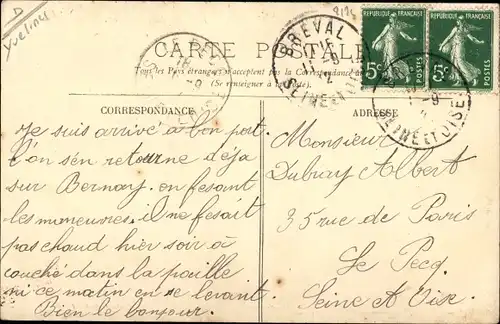 D
Yvelines
CARTE POSTALE
Tous les Pays étrangers n'acceptent pas la Correspondance au
(Se renseigner à la Poste).
RÉPUBLIQUE FRANÇAISE
5c
POSTES
RÉPUBLIQUE FRANÇAISE
5c
POSTES
BREVAL
SEINE ET OISE
SEINE ET OISE
CORRESPONDANCE
Je suis arrivé à bon port
l'on s'en retourne déja
sur Bernay en fesant
les manœuvres, il ne fesait
pas chaud hier soir à
couché dans la paille
ni ce matin en se levant
Bien le bonjour.
ADRESSE
Monsieur
Dubray Albert
35 rue de Paris
Le Pecq
Seine et Oise